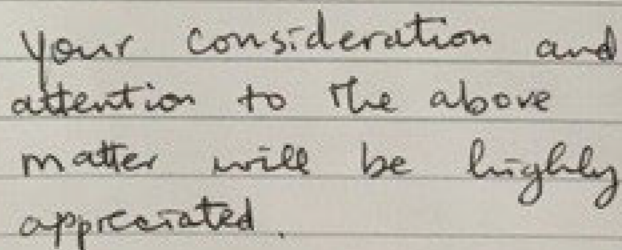 Your consideration and
attention to the above
matter will be highly
appreciated.